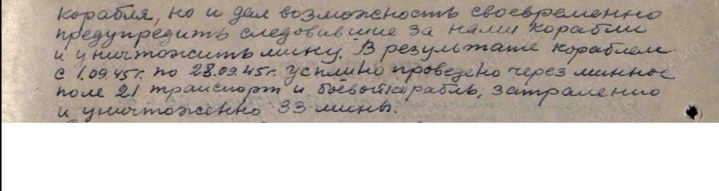 корабля, но и дал возможность своевременно
предупредить следовавшие за нами корабли
и уничтожить мину. В результате кораблем
с 1.09.45г. по 28.09.45г. успешно проведено через минное
поле 21 транспорт и боевой корабль, затралено
и уничтоженно 33 мины.